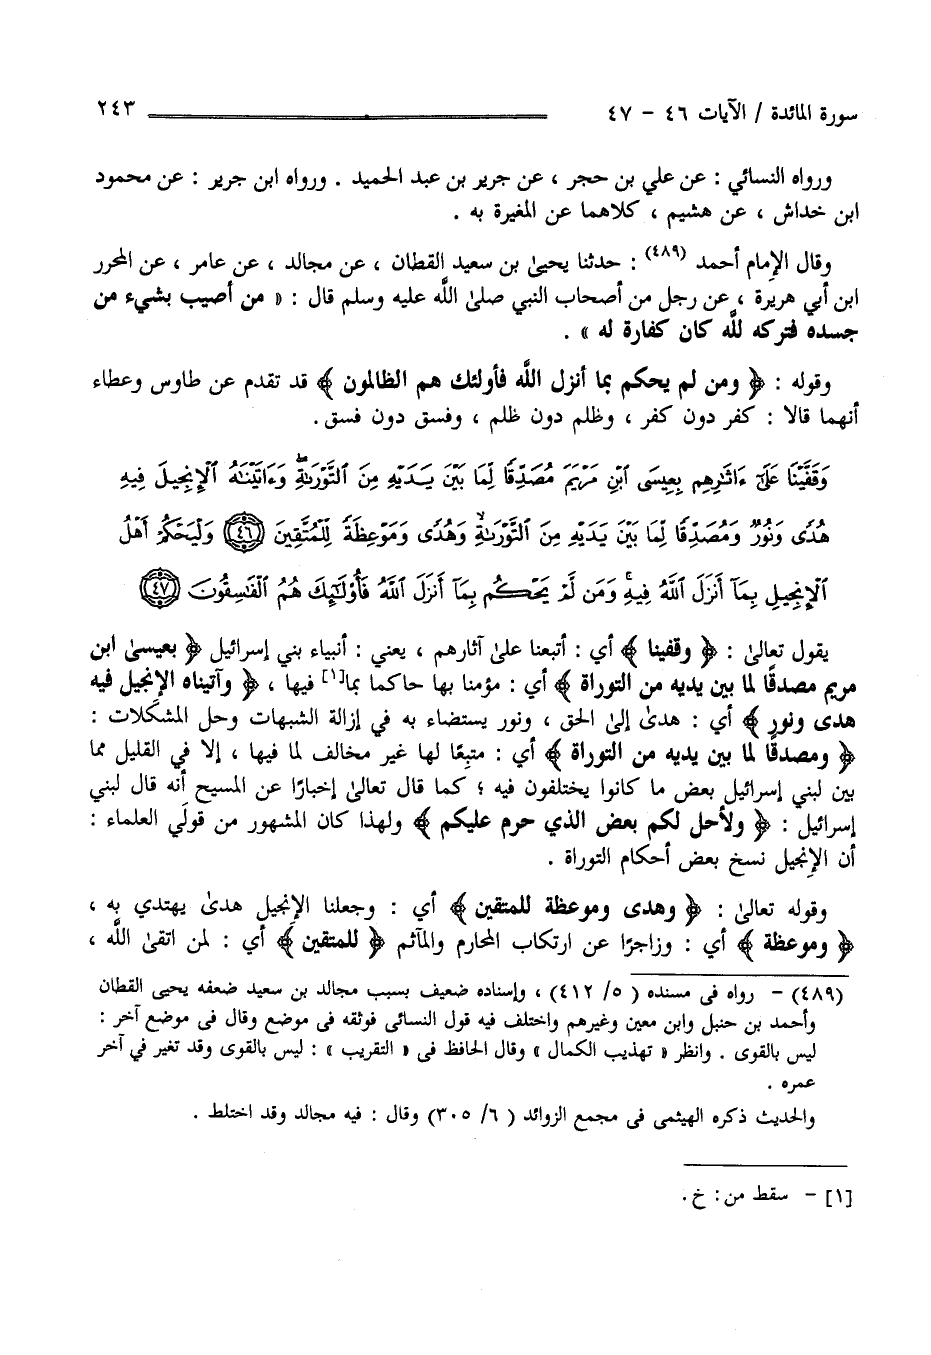 سورة المائدة / الآيات ٤٦ - ٤٧ ٢٤٣
ورواه النسائي : عن علي بن حجر ، عن جرير بن عبد الحميد . ورواه ابن جرير : عن محمود
ابن خداش ، عن هشيم ، كلاهما عن المغيرة به .
وقال الإمام أحمد (٤٨٩) : حدثنا يحيىٰ بن سعيد القطان ، عن مجالد ، عن عامر ، عن المحرر
ابن أبي هريرة ، عن رجل من أصحاب النبي صلىٰ اللَّه عليه وسلم قال : « من أصيب بشيء من
جسده فتركه للَّه كان كفارة له » .
وقوله : ﴿ ومن لم يحكم بما أنزل اللَّه فأولئك هم الظالمون ﴾ قد تقدم عن طاوس وعطاء
أنهما قالا : كفر دون كفر ، وظلم دون ظلم ، وفسق دون فسق .
وَقَفَّيْنَا عَلَىٰٓ ءَاثَٰرِهِم بِعِيسَى ٱبْنِ مَرْيَمَ مُصَدِّقًا لِّمَا بَيْنَ يَدَيْهِ مِنَ ٱلتَّوْرَىٰةِۖ وَءَاتَيْنَٰهُ ٱلْإِنجِيلَ فِيهِ
هُدًى وَنُورٌ وَمُصَدِّقًا لِّمَا بَيْنَ يَدَيْهِ مِنَ ٱلتَّوْرَىٰةِ وَهُدًى وَمَوْعِظَةً لِّلْمُتَّقِينَ ﴿٤٦﴾ وَلْيَحْكُمْ أَهْلُ
ٱلْإِنجِيلِ بِمَآ أَنزَلَ ٱللَّهُ فِيهِۚ وَمَن لَّمْ يَحْكُم بِمَآ أَنزَلَ ٱللَّهُ فَأُو۟لَٰٓئِكَ هُمُ ٱلْفَٰسِقُونَ ﴿٤٧﴾
يقول تعالىٰ : ﴿ وقفينا ﴾ أي : أتبعنا علىٰ آثارهم ، يعني : أنبياء بني إسرائيل ﴿ بعيسىٰ ابن
مريم مصدقًا لما بين يديه من التوراة ﴾ أي : مؤمنا بها حاكما بما[١] فيها ، ﴿ وآتيناه الإنجيل فيه
هدى ونور ﴾ أي : هدىٰ إلىٰ الحق ، ونور يستضاء به في إزالة الشبهات وحل المشكلات :
﴿ ومصدقًا لما بين يديه من التوراة ﴾ أي : متبعًا لها غير مخالف لما فيها ، إلا في القليل مما
بين لبني إسرائيل بعض ما كانوا يختلفون فيه ؛ كما قال تعالىٰ إخبارًا عن المسيح أنه قال لبني
إسرائيل : ﴿ ولأحل لكم بعض الذي حرم عليكم ﴾ ولهذا كان المشهور من قولَي العلماء :
أن الإنجيل نسخ بعض أحكام التوراة .
وقوله تعالىٰ : ﴿ وهدى وموعظة للمتقين ﴾ أي : وجعلنا الإنجيل هدىٰ يهتدي به ،
﴿ وموعظة ﴾ أي : وزاجرًا عن ارتكاب المحارم والمآثم ﴿ للمتقين ﴾ أي : لمن اتقىٰ اللَّه ،
(٤٨٩) - رواه فى مسنده ( ٥/ ٤١٢) ، وإسناده ضعيف بسبب مجالد بن سعيد ضعفه يحيى القطان
وأحمد بن حنبل وابن معين وغيرهم واختلف فيه قول النسائى فوثقه فى موضع وقال فى موضع آخر :
ليس بالقوى . وانظر « تهذيب الكمال » وقال الحافظ فى « التقريب » : ليس بالقوى وقد تغير في آخر
عمره .
والحديث ذكره الهيثمى فى مجمع الزوائد ( ٦/ ٣٠٥) وقال : فيه مجالد وقد اختلط .
[١] - سقط من : خ .